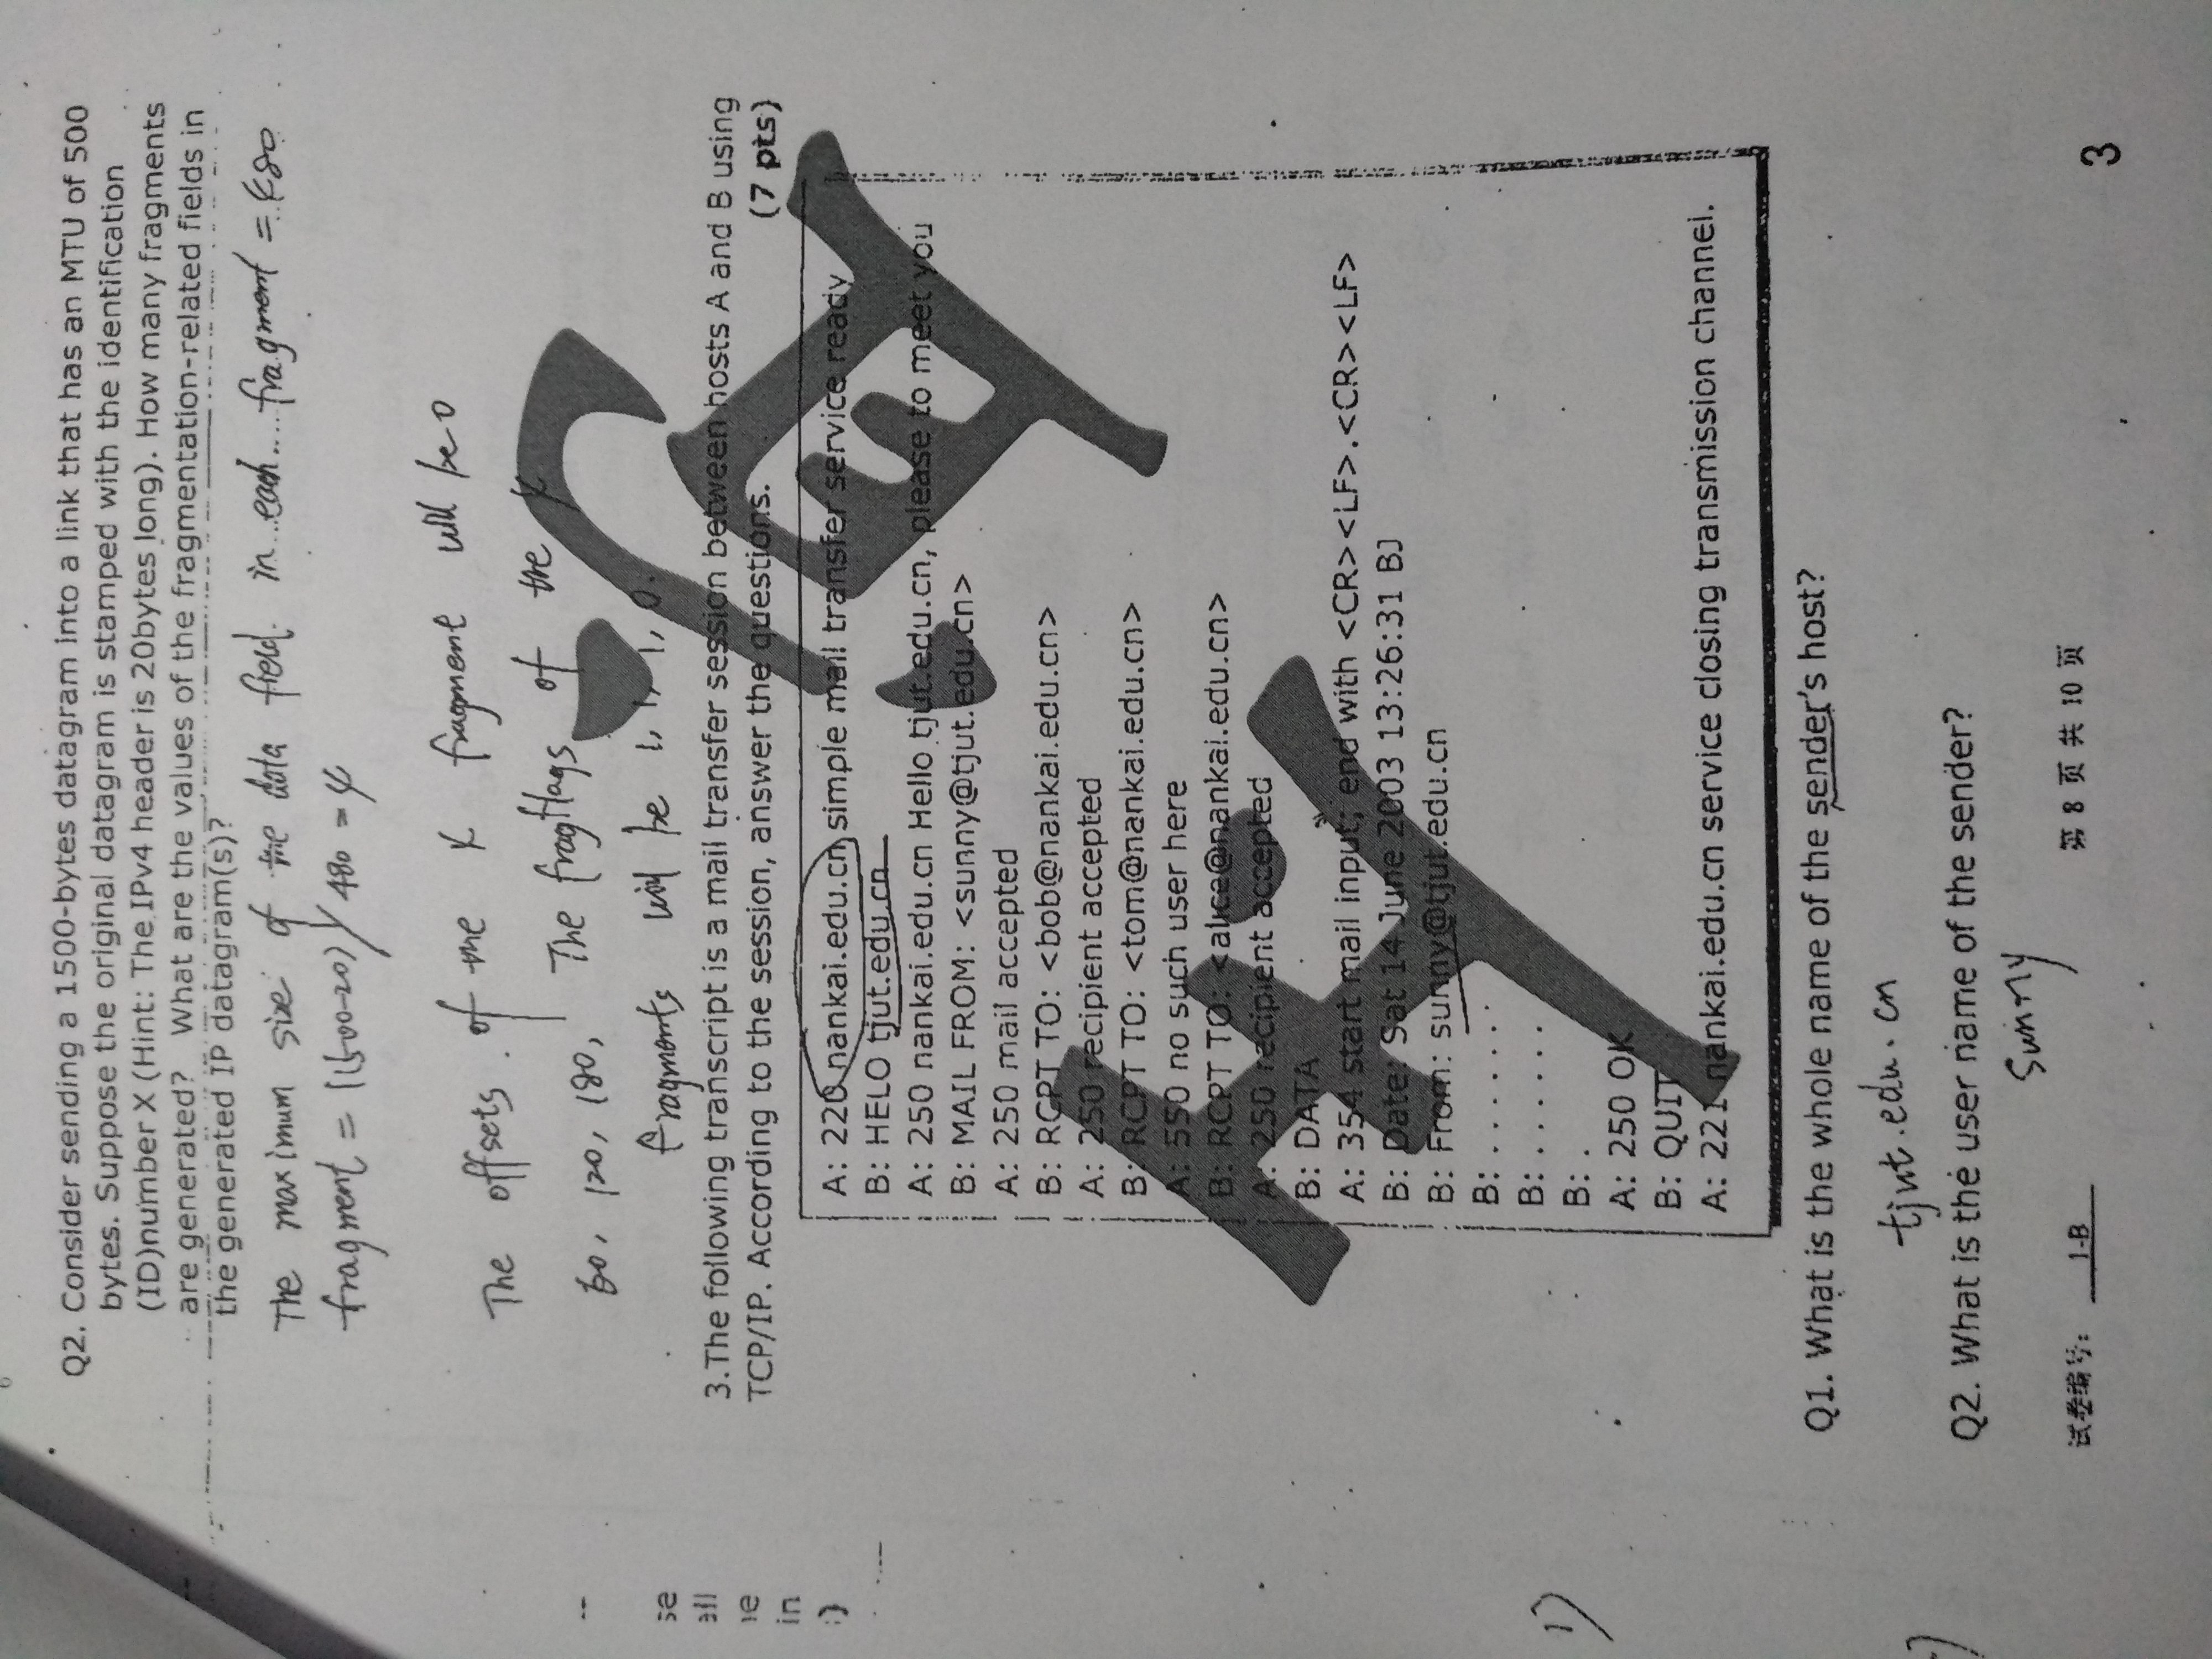 Q2. Consider sending a 1500-bytes datagram into a link that has an MTU of 500
bytes. Suppose the original datagram is stamped with the identification
(ID)number X (Hint: The IPv4 header is 20bytes long). How many fragments
are generated? What are the values of the fragmentation-related fields in
the generated IP datagram(s)?
The maximum size of the data field in each fragment = 480
fragment = (1500-20)/480 = 4
The offsets of the 4 fragment will be 0
60, 120, 180, The fragflags of the 4
fragments will be 1, 1, 1, 0.
se
all
1e
in
:)
3.The following transcript is a mail transfer session between hosts A and B using
TCP/IP. According to the session, answer the questions. (7 pts)
A: 220 nankai.edu.cn simple mail transfer service ready
B: HELO tjut.edu.cn
A: 250 nankai.edu.cn Hello tjut.edu.cn, please to meet you
B: MAIL FROM: <sunny@tjut.edu.cn>
A: 250 mail accepted
B: RCPT TO: <bob@nankai.edu.cn>
A: 250 recipient accepted
B: RCPT TO: <tom@nankai.edu.cn>
A: 550 no such user here
B: RCPT TO: <alice@nankai.edu.cn>
A: 250 recipient accepted
B: DATA
A: 354 start mail input; end with <CR><LF>.<CR><LF>
B: Date: Sat 14 June 2003 13:26:31 BJ
B: From: sunny@tjut.edu.cn
B: . . . . . . .
B: . . . . . .
B: .
A: 250 OK
B: QUIT
A: 221 nankai.edu.cn service closing transmission channel.
1)
Q1. What is the whole name of the sender's host?
tjut.edu.cn
Q2. What is the user name of the sender?
Sunny
试卷编号: 1-B 第 8 页 共 10 页
3